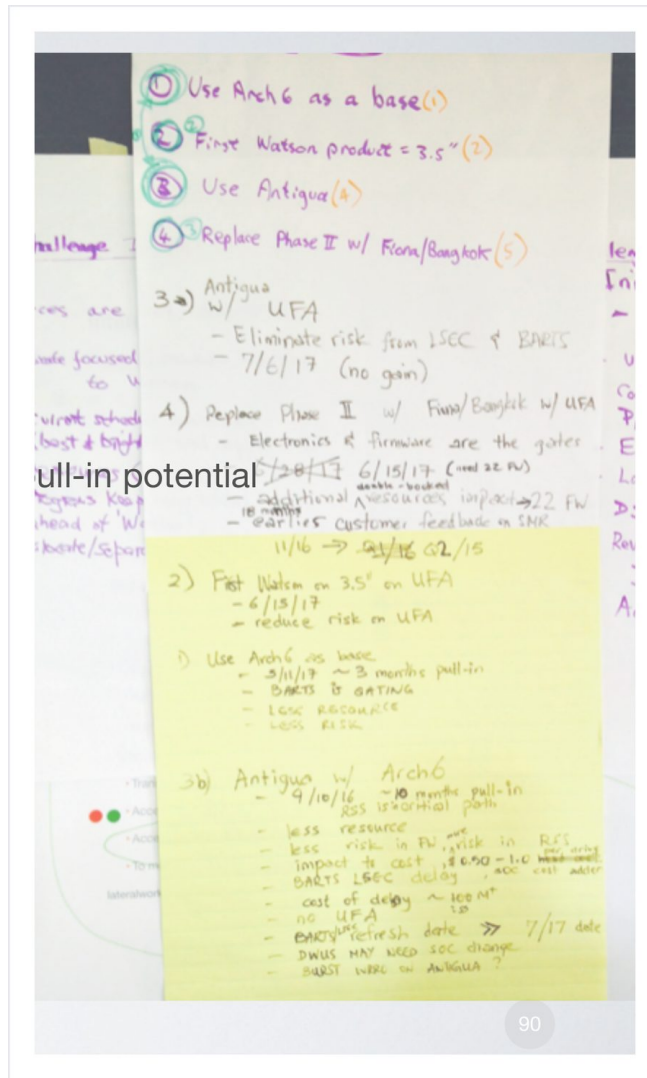 ① Use Arch 6 as a base (1)
② ② First Watson product = 3.5" (2)
③ Use Antigua (4)
④ ③ Replace Phase II w/ Fiona/Bangkok (5)
3a) Antigua
w/ UFA
- Eliminate risk from LSEC & BARTS
- 7/6/17 (no gain)
4) Replace Phase II w/ Fiona/Bangkok w/ UFA
- Electronics & firmware are the gates
ull-in potential
6/15/17 (need 22 FW)
double booked
- additional ^ resources impact → 22 FW
18 months
- earlier customer feedback on SMR
11/16 → G2/15
2) First Watson on 3.5" on UFA
- 6/15/17
- reduce risk on UFA
1) Use Arch 6 as base
- 5/11/17 ~ 3 months pull-in
- BARTS IS GATING
- LESS RESOURCE
- LESS RISK
3b) Antigua w/ Arch 6
- 9/10/16 ~10 months pull-in
RSS is critical path
- less resource
- less risk in FW, risk in RSS
- impact to cost, $0.50 - 1.0
- BARTS LSEC delay, cost adder
- cost of delay ~ 100 M+
- no UFA
- BARTS refresh date >> 7/17 date
- DWUS MAY NEED SOC change
- BURST ON ANTIGUA ?
hallenge
ces are
focused
to W
current sched
best & bright
ahead of 'W
locate/separ
lateralwork
90